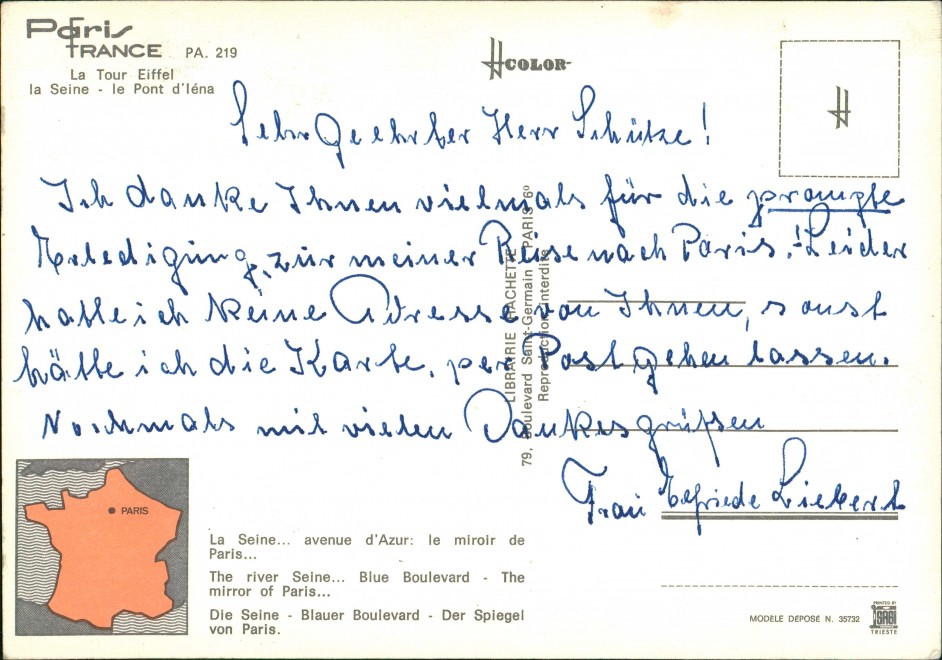 Paris
FRANCE PA. 219
La Tour Eiffel
la Seine - le Pont d'Iéna
COLOR
Sehr Geehrter Herr Schütze!
Ich danke Ihnen vielmals für die prompte
Erledigung, zur meiner Reise nach Paris.! Leider
hatte ich keine Adresse von Ihnen, sonst
hätte ich die Karte, per Post gehen lassen.
Nochmals mit vielen Dankesgrüßen
Frau Elfriede Liebert
LIBRAIRIE HACHETTE
79, Boulevard Saint-Germain PARIS 6º
Reproduction Interdite
PARIS
La Seine... avenue d'Azur: le miroir de
Paris...
The river Seine... Blue Boulevard - The
mirror of Paris...
Die Seine - Blauer Boulevard - Der Spiegel
von Paris.
MODÈLE DÉPOSÉ N. 35732
PRINTED BY
SAGI
TRIESTE